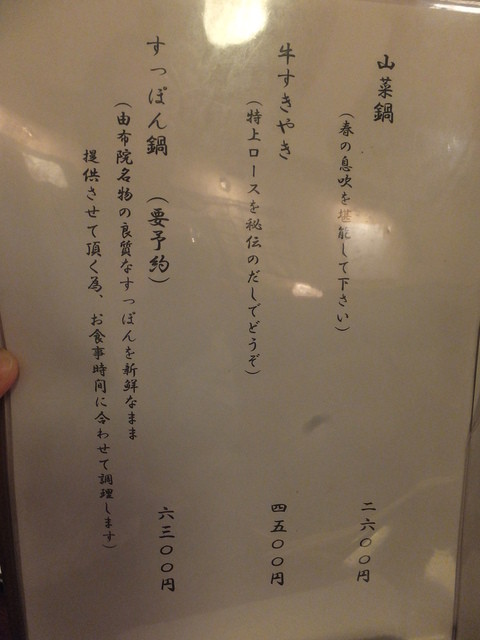 山菜鍋
（春の息吹を堪能して下さい）
二六〇〇円
牛すきやき
（特上ロースを秘伝のだしでどうぞ）
四五〇〇円
すっぽん鍋　（要予約）
（由布院名物の良質なすっぽんを新鮮なまま
提供させて頂く為、お食事時間に合わせて調理します）
六三〇〇円